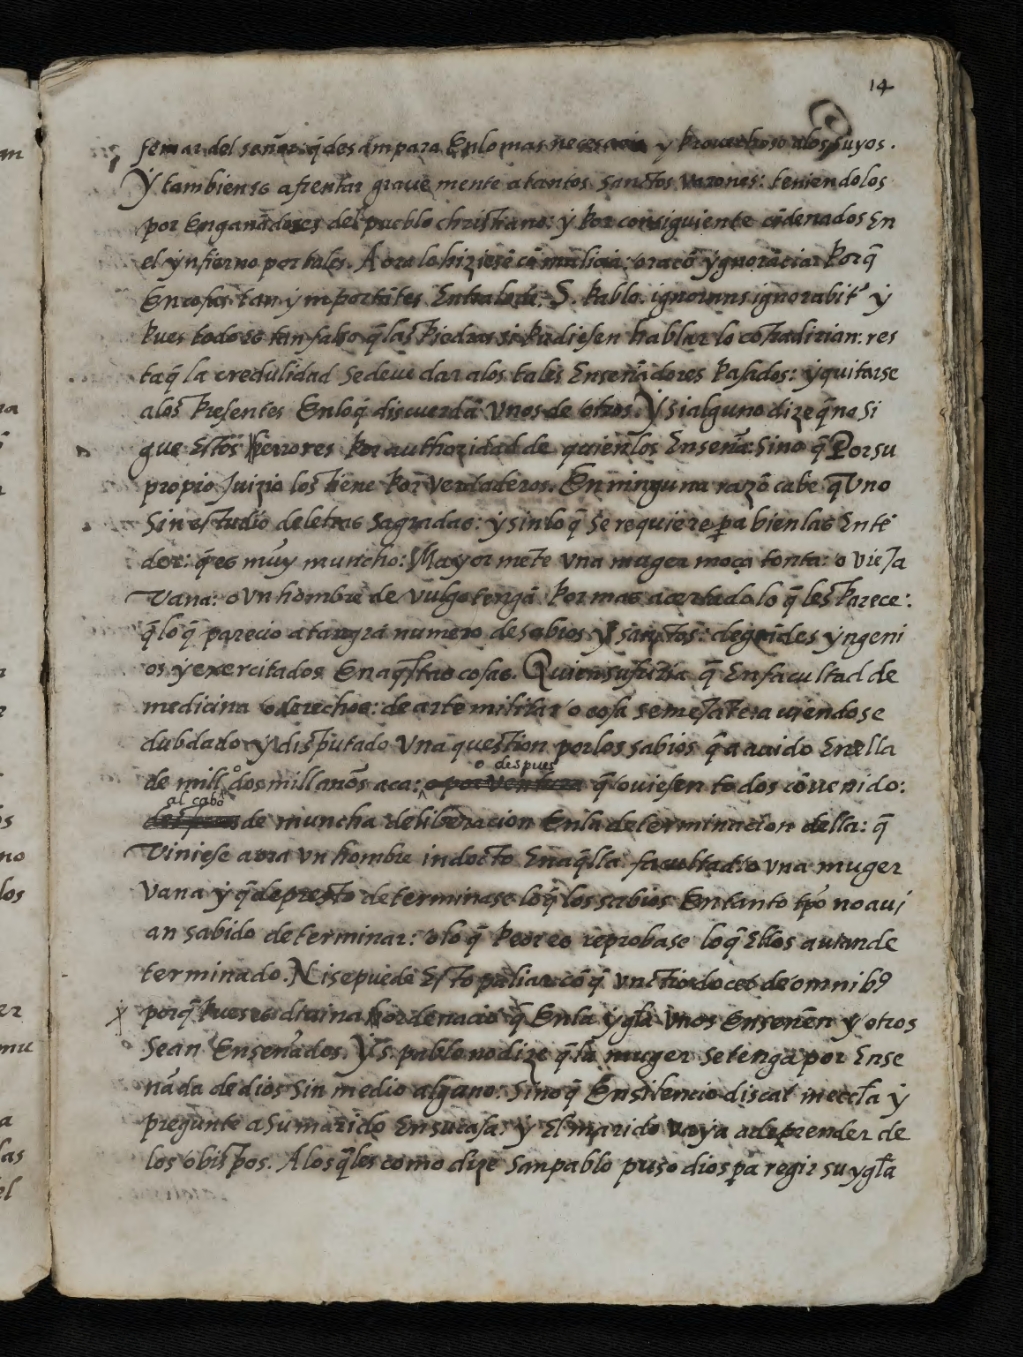 14
femar del señor q̄ des ampara En lo mas necesario y Prouechoso alos suyos.
Y tambien es afrentar graue mente a tantos sanctos varones: teniendolos
por Engañadores del pueblo christiano: y por consiguiente cōdenados En
el ynfierno por tales. Aora lo hiziesē cō malicia: ora cō ygnorācia: Porq̄
En cosas tan ymportātes Entra lo de S. Pablo. ignorans ignorabit᷑ y
Pues todo es tan falso q̄ las Piedras si Pudiesen hablar lo cōtradirian: res
ta q̄ la credulidad se deue dar alos tales Enseñadores Pasados: y quitarse
alos Presentes En lo q̄ discuerdā vnos de otros. Y si alguno dize q̄ no si
gue Estos herrores Por authoridad de quien los Enseña: sino q̄ Por su
propio Juizio los tiene Por verdaderos. En ninguna razō cabe q̄ vno
sin estudio de letras sagradas: y sin lo q̄ se requiere pa bien las Entē
der: q̄ es muy muncho: Mayor mēte vna muger moça tonta: o vieja
vana: o vn hombre de vulgo tengā Por mas acertado lo q̄ les Parece:
q̄ lo q̄ parecio a tan grā numero de sabios y sanctos: de grādes yngeni
os y exercitados En aq̄stas cosas. Quien sufriria q̄ En facultad de
medicina o derechos: de arte militar o cosa semejāte auiendose
dubdado y disputado vna question por los sabios q̄ a auido En ella
o despues
de mill o dos mill años aca: q̄ ouiesen todos cōuenido:
al cabo
de muncha deliberacion En la determinacion della: q̄
viniese aora vn hombre indocto En aq̄lla facultad: o vna muger
vana y q̄ de presto determinase lo q̄ los sabios En tanto tpō no aui
an sabido determinar: o lo q̄ Peor es reprobase lo q̄ Ellos auian de
terminado. Ni se puede Esto paliar cō q̄ vnctio docet de omnib9
porq̄ Pues es diuina hordenacio q̄ En la ygla vnos Enseñen y otros
sean Enseñados. Y s. pablo no dize q̄ la muger se tenga por Ense
ñada de dios sin medio alguno: sino q̄ En silencio discat y
pregunte a su marido En su casa: y El marido vaya a deprender de
los obispos. A los q̄les como dize san pablo puso dios pa regir su ygla